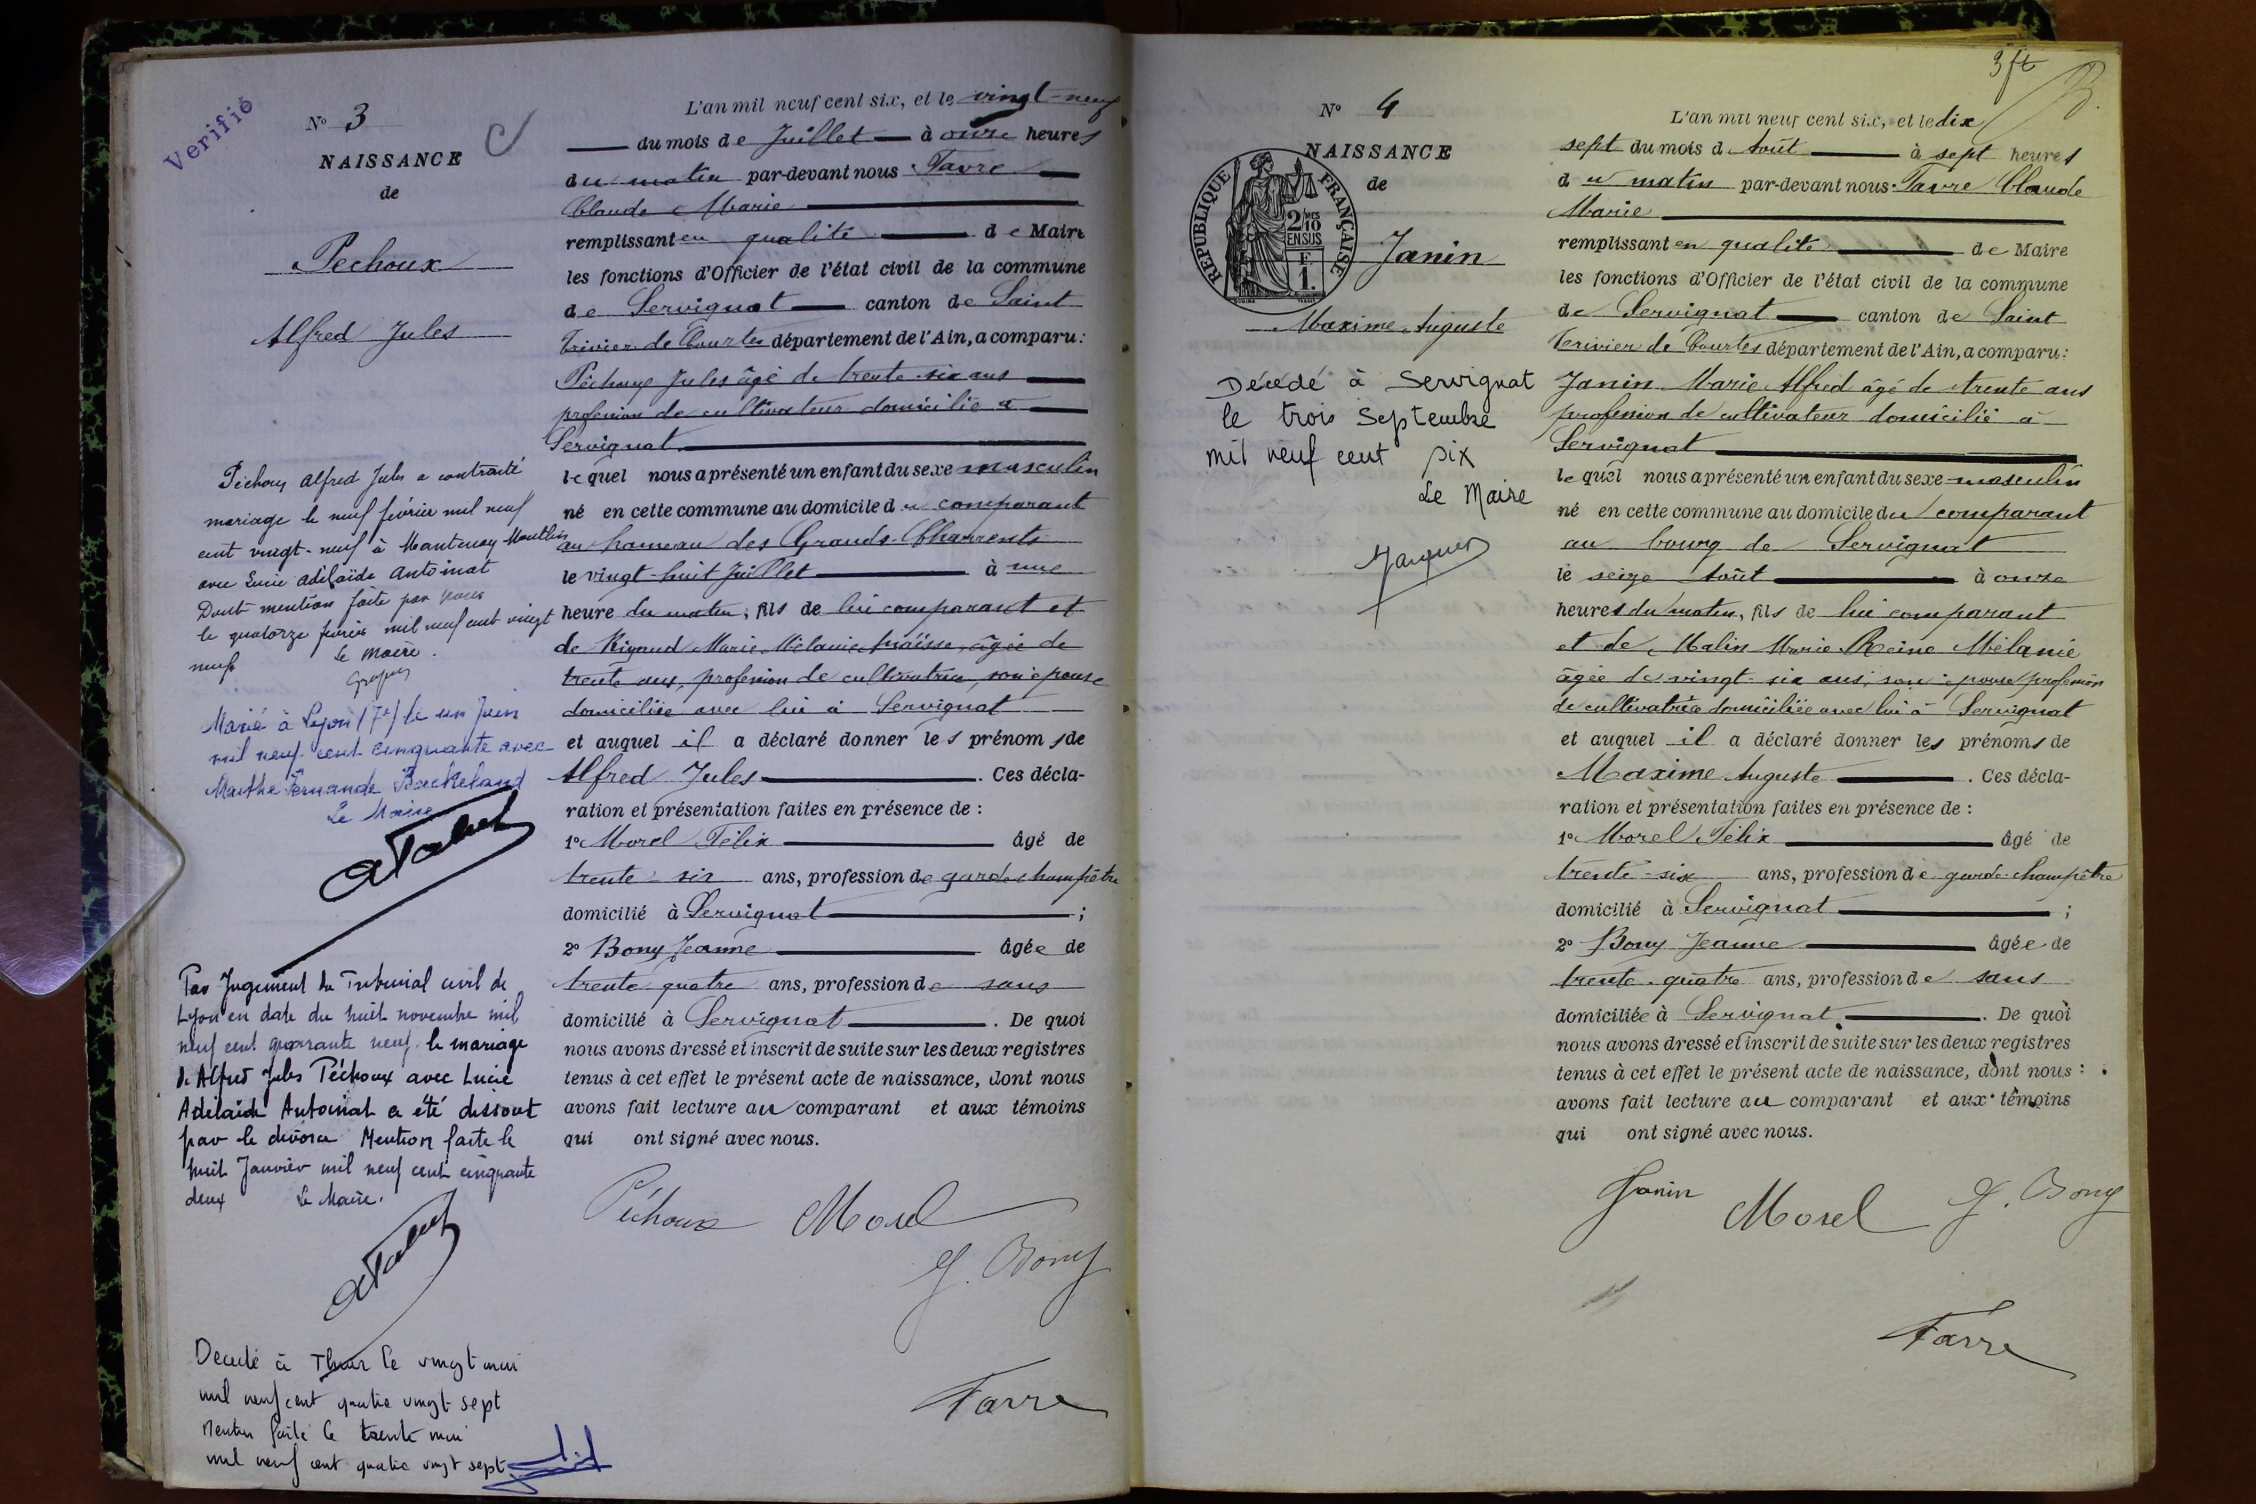 Verifié
N° 3
NAISSANCE
de
Pechoux
Alfred Jules
Péchoux Alfred Jules a contracté
mariage le neuf février mil neuf
cent vingt-neuf à Mantenay Montlin
avec Lucie Adélaïde Antoinat
Dont mention faite par nous
le quatorze février mil neuf cent vingt
neuf Le Maire.
Marié à Lyon (7e) le un Juin
mil neuf cent cinquante avec
Marthe Fernande Backeland
Le Maire
Par Jugement du Tribunal civil de
Lyon en date du huit novembre mil
neuf cent quarante neuf le mariage
de Alfred Jules Péchoux avec Lucie
Adélaïde Antoinat a été dissout
par le divorce Mention faite le
huit Janvier mil neuf cent cinquante
deux Le Maire.
Decedé à le vingt mai
mil neuf cent quatre vingt sept
Mention faite le trente mai
mil neuf cent quatre vingt sept
L'an mil neuf cent six, et le vingt-neuf
du mois de Juillet à onze heures
du matin par-devant nous Favre
Claude Marie
remplissant en qualité de Maire
les fonctions d'Officier de l'état civil de la commune
de Servignat canton de Saint
Trivier de Courtes département de l'Ain, a comparu :
Péchoux Jules âgé de trente-six ans
profession de cultivateur domicilié à
Servignat
lequel nous a présenté un enfant du sexe masculin
né en cette commune au domicile du comparant
au hameau des Grands Charrents
le vingt-huit Juillet à une
heure du matin, fils de lui comparant et
de Rigaud Marie Mélanie âgée de
trente ans, profession de cultivatrice, son épouse
domiciliée avec lui à Servignat
et auquel il a déclaré donner les prénoms de
Alfred Jules . Ces décla-
ration et présentation faites en présence de :
1° Morel Félix âgé de
trente-six ans, profession de garde champêtre
domicilié à Servignat ;
2° Bony Jeanne âgée de
trente quatre ans, profession de sans
domicilié à Servignat . De quoi
nous avons dressé et inscrit de suite sur les deux registres
tenus à cet effet le présent acte de naissance, dont nous
avons fait lecture au comparant et aux témoins
qui ont signé avec nous.
Péchoux Morel
J. Bony
Favre
N° 4
NAISSANCE
de
REPUBLIQUE FRANÇAISE
2/10 MES
EN SUS
F.
1.
Janin
Maxime Auguste
Décédé à Servignat
le trois Septembre
mil neuf cent six
Le Maire
L'an mil neuf cent six, et le dix
sept du mois d Août à sept heures
du matin par-devant nous Favre Claude
Marie
remplissant en qualité de Maire
les fonctions d'Officier de l'état civil de la commune
de Servignat canton de Saint
Trivier de Courtes département de l'Ain, a comparu :
Janin Marie Alfred âgé de trente ans
profession de cultivateur domicilié à
Servignat
lequel nous a présenté un enfant du sexe masculin
né en cette commune au domicile du comparant
au bourg de Servignat
le seize Août à onze
heures du matin, fils de lui comparant
et de Malin Marie Reine Mélanie
âgée de vingt-six ans, son épouse profession
de cultivatrice domiciliée avec lui à Servignat
et auquel il a déclaré donner les prénoms de
Maxime Auguste . Ces décla-
ration et présentation faites en présence de :
1° Morel Félix âgé de
trente-six ans, profession de garde-champêtre
domicilié à Servignat ;
2° Bony Jeanne âgée de
trente-quatre ans, profession de sans
domiciliée à Servignat . De quoi
nous avons dressé et inscrit de suite sur les deux registres
tenus à cet effet le présent acte de naissance, dont nous
avons fait lecture au comparant et aux témoins
qui ont signé avec nous.
Janin Morel J. Bony
Favre